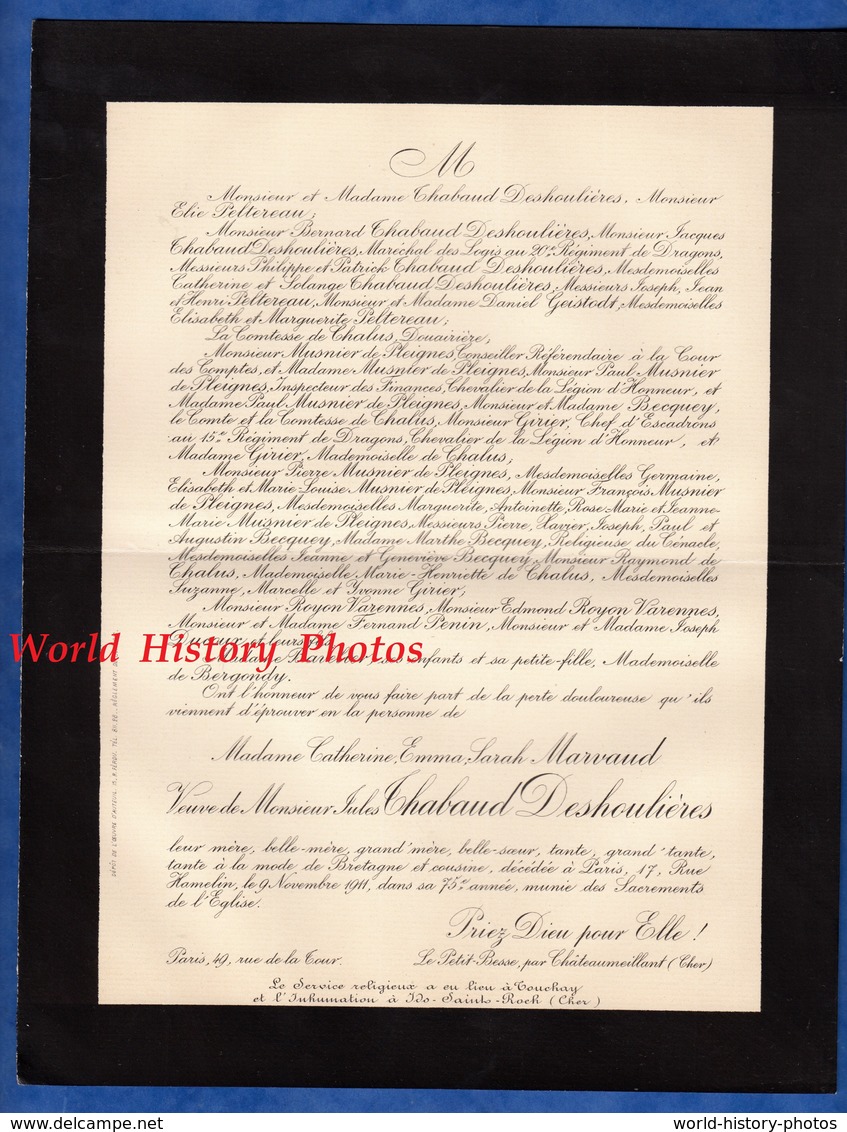 M
Monsieur et Madame Thabaud Deshoulières, Monsieur
Elie Peltereau;
Monsieur Bernard Thabaud Deshoulières, Monsieur Jacques
Thabaud Deshoulières, Maréchal des Logis au 20e Régiment de Dragons,
Messieurs Philippe et Patrick Thabaud Deshoulières, Mesdemoiselles
Catherine et Solange Thabaud Deshoulières; Messieurs Joseph, Jean
et Henri Peltereau, Monsieur et Madame Daniel Geistodt, Mesdemoiselles
Elisabeth et Marguerite Peltereau;
La Comtesse de Chalus, Douairière;
Monsieur Musnier de Pleignes, Conseiller Référendaire à la Cour
des Comptes, et Madame Musnier de Pleignes, Monsieur Paul Musnier
de Pleignes, Inspecteur des Finances, Chevalier de la Légion d'Honneur, et
Madame Paul Musnier de Pleignes, Monsieur et Madame Becquey,
le Comte et la Comtesse de Chalus, Monsieur Girier, Chef d'Escadrons
au 15e Régiment de Dragons, Chevalier de la Légion d'Honneur, et
Madame Girier, Mademoiselle de Chalus;
Monsieur Pierre Musnier de Pleignes, Mesdemoiselles Germaine,
Elisabeth et Marie-Louise Musnier de Pleignes, Monsieur François Musnier
de Pleignes, Mesdemoiselles Marguerite, Antoinette, Rose-Marie et Jeanne-
Marie Musnier de Pleignes, Messieurs Pierre, Xavier, Joseph, Paul et
Augustin Becquey, Madame Marthe Becquey, Religieuse du Cénacle,
Mesdemoiselles Jeanne et Geneviève Becquey, Monsieur Raymond de
Chalus, Mademoiselle Marie-Henriette de Chalus, Mesdemoiselles
Suzanne, Marcelle et Yvonne Girier;
Monsieur Royon Varennes, Monsieur Edmond Royon Varennes,
Monsieur et Madame Fernand Penin, Monsieur et Madame Joseph
et leurs
World History Photos
enfants et sa petite-fille, Mademoiselle
de Bergondy.
Ont l'honneur de vous faire part de la perte douloureuse qu'ils
viennent d'éprouver en la personne de
Madame Catherine, Emma, Sarah Marvaud
Veuve de Monsieur Jules Thabaud Deshoulières
leur mère, belle-mère, grand'mère, belle-sœur, tante, grand'tante,
tante à la mode de Bretagne et cousine, décédée à Paris, 17, Rue
Hamelin, le 9 Novembre 1911, dans sa 75e année, munie des Sacrements
de l'Eglise.
Priez Dieu pour Elle!
Paris, 49, rue de la Tour. Le Petit-Besse, par Châteaumeillant (Cher)
Le Service religieux a eu lieu à Touchay
et l'Inhumation à Ids-Saint-Roch (Cher)
world-history-photos